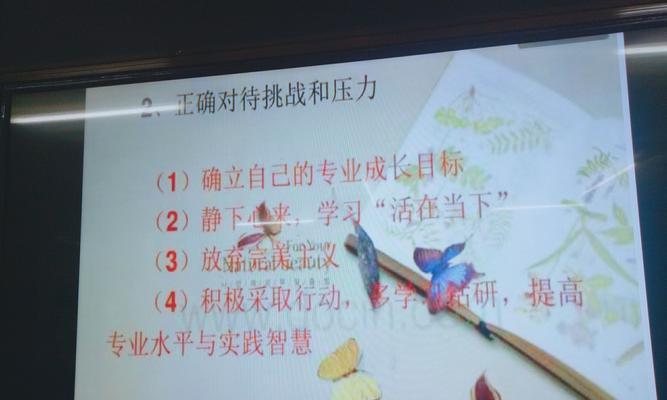 2、正确对待挑战和压力
（1）确立自己的专业成长目标
（2）静下心来，学习“活在当下”
For Your
Natural Beauty
（3）放弃完美主义
（4）积极采取行动，多学 钻研，提高
专业水平与实践智慧